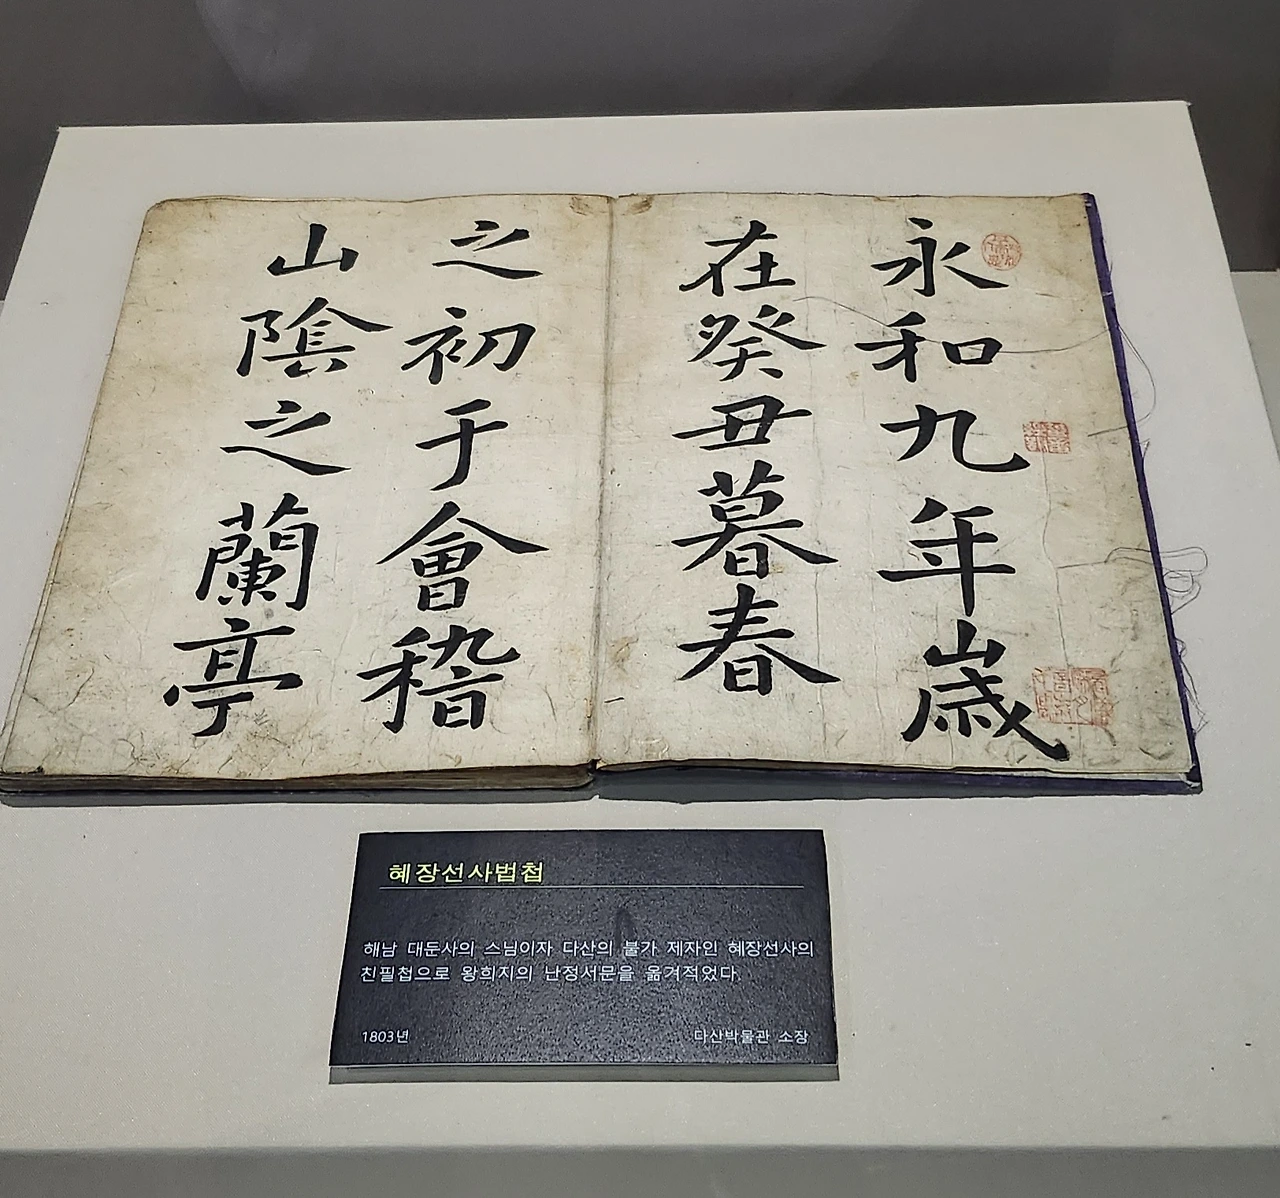 永和九年歲
在癸丑暮春
之初于會稽
山陰之蘭亭
혜장선사법첩
해남 대둔사의 스님이자 다산의 불가 제자인 혜장선사의
친필첩으로 왕희지의 난정서문을 옮겨적었다.
1803년
다산박물관 소장